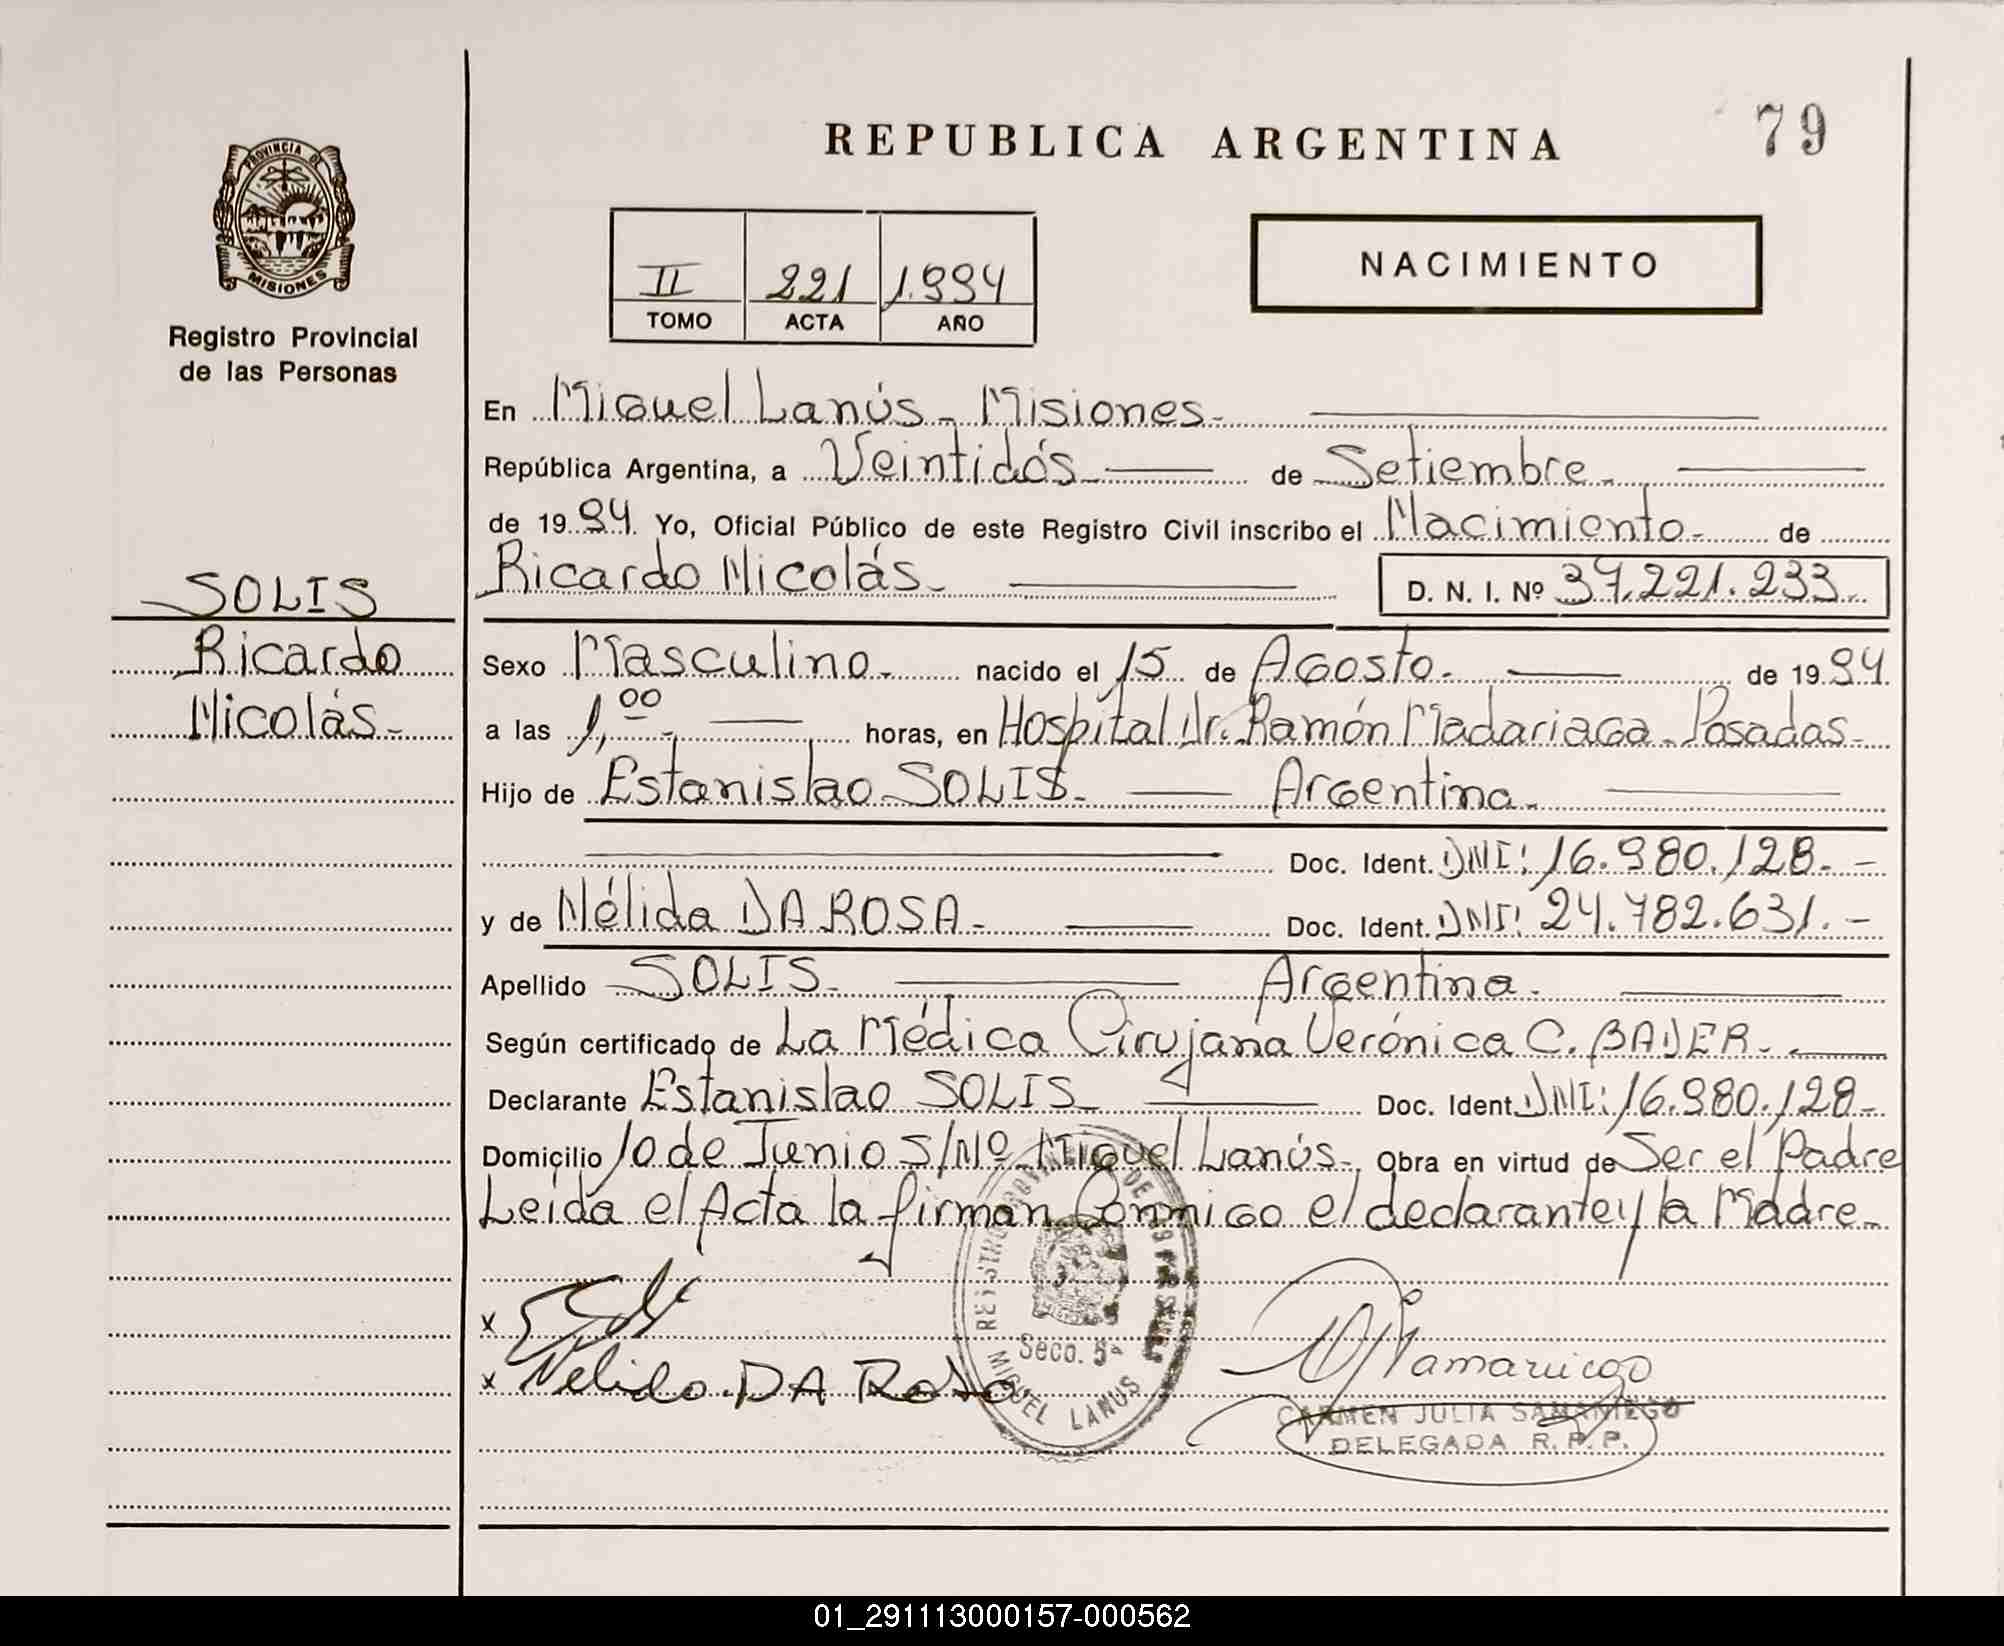 REPUBLICA ARGENTINA
79
PROVINCIA DE
MISIONES
Registro Provincial
de las Personas
II 221 1.994
TOMO ACTA AÑO
NACIMIENTO
En Miguel Lanús - Misiones-
República Argentina, a Veintidós - de Setiembre.
de 1994 Yo, Oficial Público de este Registro Civil inscribo el Nacimiento- de
Ricardo Nicolás- D. N. I. Nº 37.221.233.
SOLIS
Ricardo
Nicolás-
Sexo Masculino. nacido el 15 de Agosto. de 1994
a las 1,00 - horas, en Hospital Dr. Ramón Madariaga - Posadas-
Hijo de Estanislao SOLIS- Argentina.
Doc. Ident. DNI: 16.980.128. -
y de Nélida DA ROSA - Doc. Ident. DNI: 24.782.631. -
Apellido SOLIS- Argentina.
Según certificado de La Médica Cirujana Verónica C. BAUER-
Declarante Estanislao SOLIS- Doc. Ident DNI: 16.980.128-
Domicilio 10 de Junio S/Nº Miguel Lanús-. Obra en virtud de Ser el Padre
Leída el Acta la firman Conmigo el declarante y la Madre-
x
x Nelida DA Rosa
Secc. 5ª
MIGUEL LANUS
CARMEN JULIA SAMANIEGO
DELEGADA R. P. P.
01_291113000157-000562